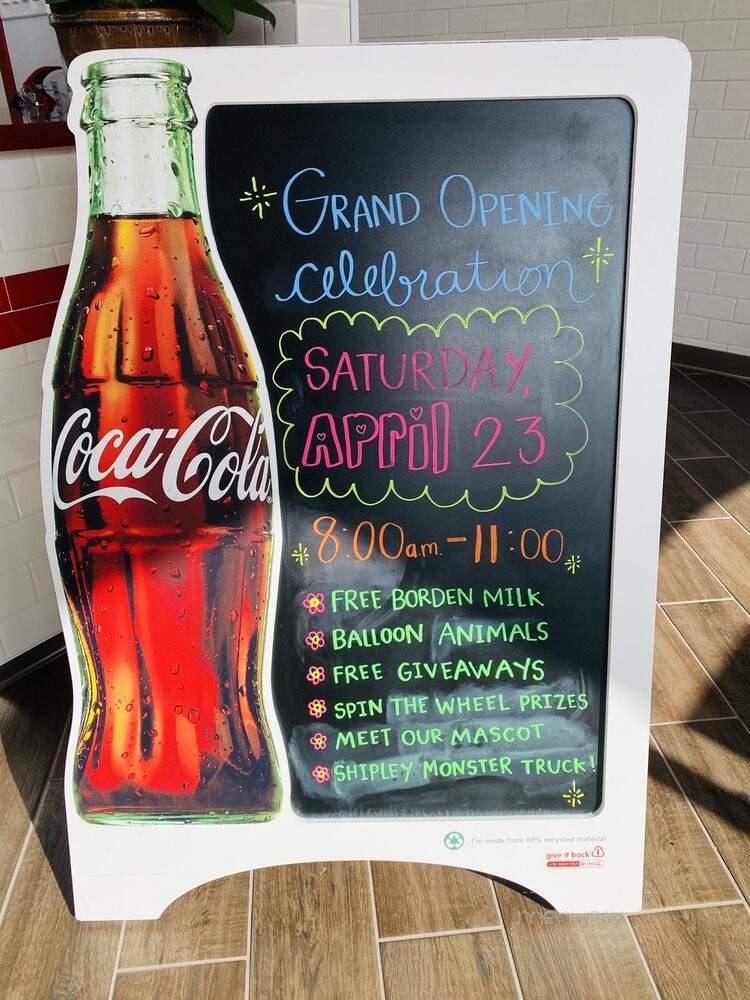 GRAND OPENING
celebration
SATURDAY,
APRil 23
8:00a.m.-11:00
FREE BORDEN MILK
BALLOON ANIMALS
FREE GIVEAWAYS
SPIN THE WHEEL PRIZES
MEET OUR MASCOT
SHIPLEY MONSTER TRUCK!
Coca-Cola®
I'm made from 80% recycled material
give it back